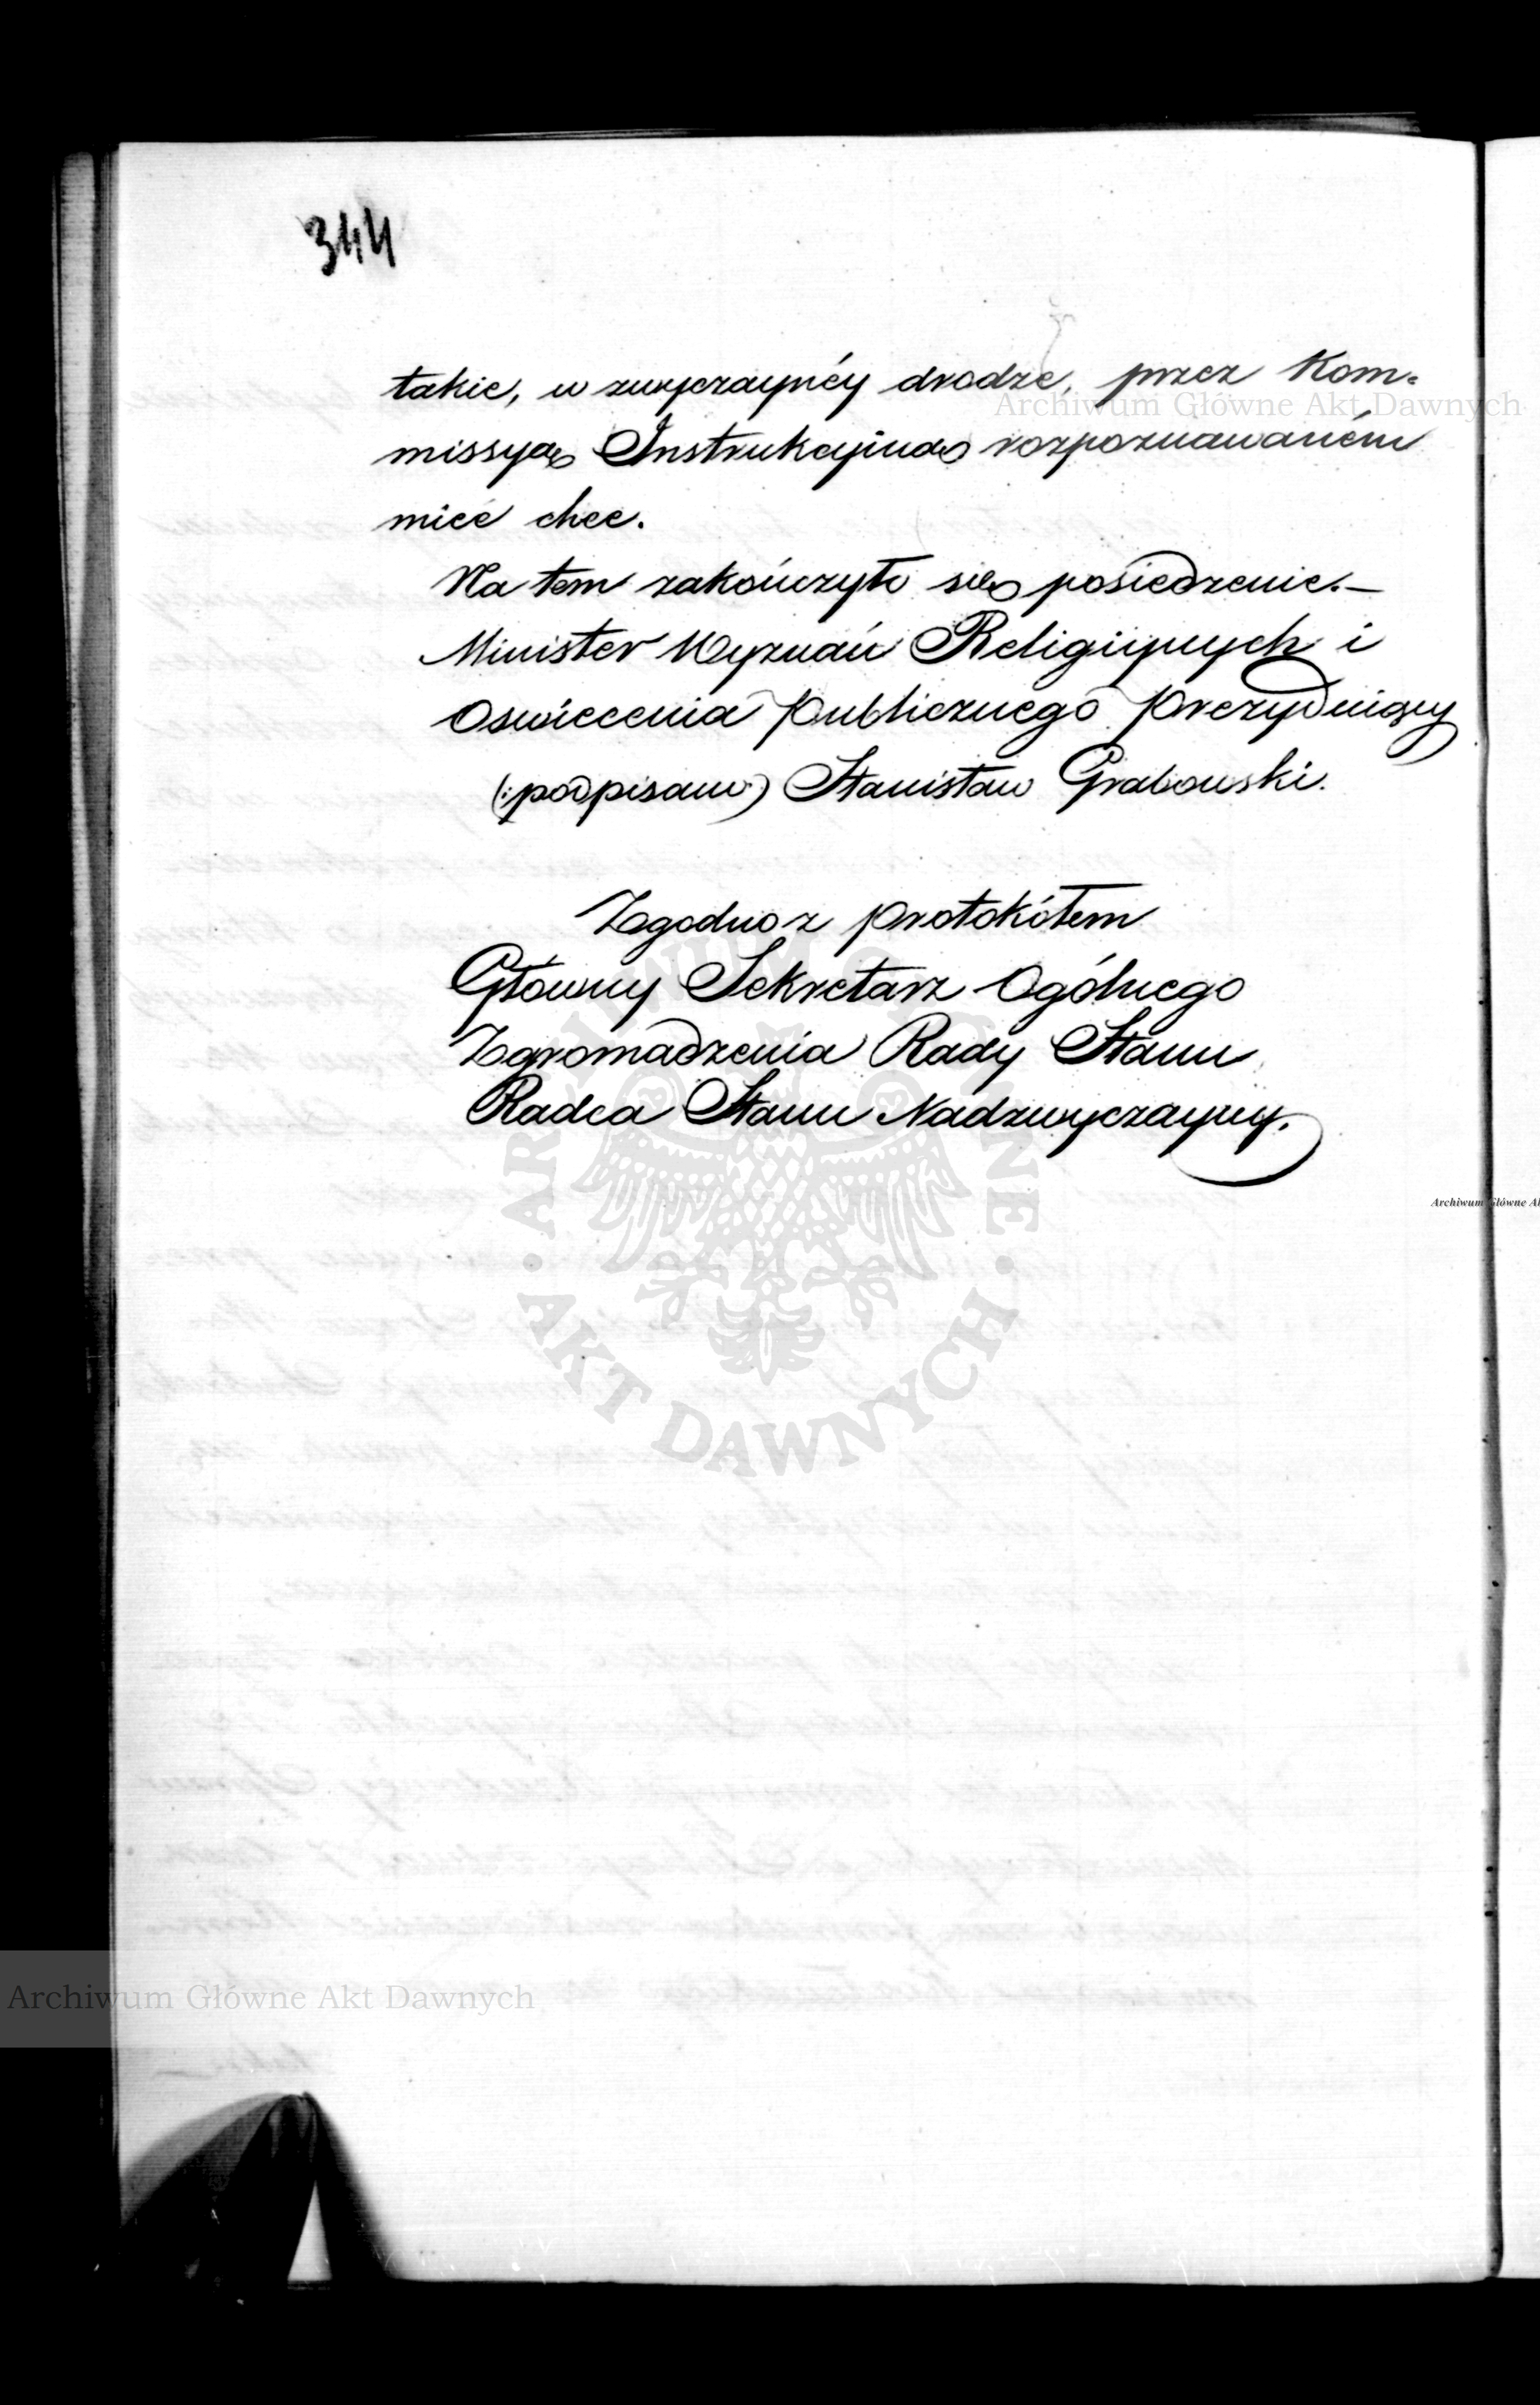 344
takie, w zwyczaynéy drodze, przez Kom=
missyą Instrukcyiną rozpoznawaném
mieć chce.
Na tem zakończyło się posiedzenie.—
Minister Wyznań Religiynych i
Oswiecenia Publicznego Prezyduiący
(:podpisano:) Stanisław Grabowski.
Zgodno z protokółem
Główny Sekretarz Ogólnego
Zgromadzenia Rady Stanu
Radca Stanu Nadzwyczayny.
Archiwum Główne Akt Dawnych
ARCHIWUM GŁÓWNE
AKT DAWNYCH
Archiwum Główne Ak
Archiwum Główne Akt Dawnych